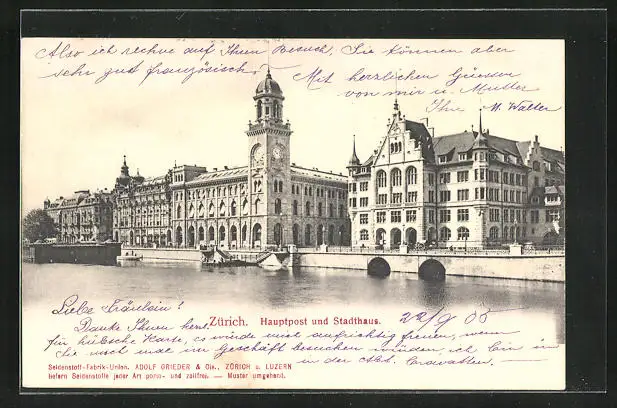 Also ich rechne auf Ihren Besuch, Sie können aber
sehr gut französisch.
Mit herzlichen Grüssen
von mir u. Mutter
Ihr M. Walter
22/9 05
Liebe Fräulein!
Zürich. Hauptpost und Stadthaus.
Danke Ihnen herz.
für hübsche Karte, es würde mich aufrichtig freuen, wenn
Sie mich mal im Geschäft besuchen würden, ich bin in
in der Abt. Cravatten,
Seidenstoff-Fabrik-Union, ADOLF GRIEDER & Cie., ZÜRICH u. LUZERN
liefern Seidenstoffe jeder Art porto- und zollfrei. — Muster umgehend.